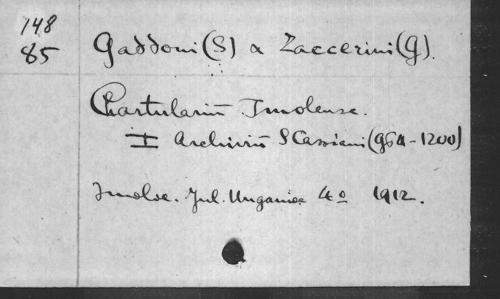 148
85
Gaddoni (S) & Zaccerini (G).
Chartulariū Imolense.
I Archiviū S Cassiani (964-1200)
Imolae. Jul. Ungania 4o 1912.